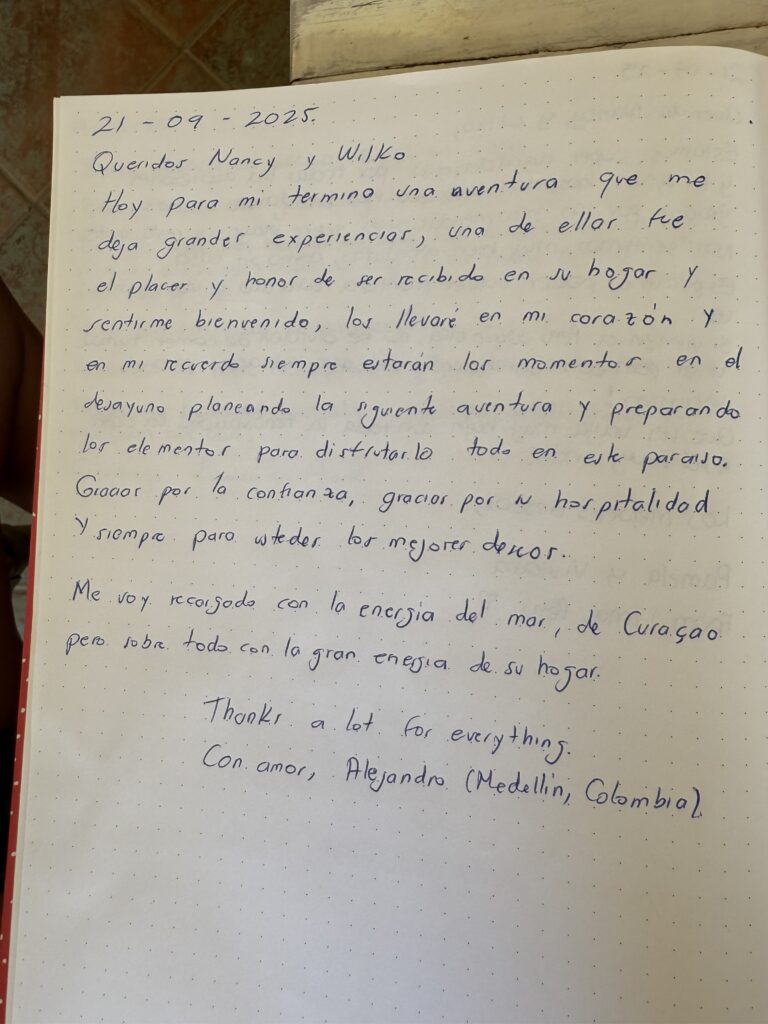 21 - 09 - 2025.
Queridos Nancy y Wilko
Hoy para mi termina una aventura que me
deja grandes experiencias, una de ellas fue
el placer y honor de ser recibido en su hogar y
sentirme bienvenido, los llevaré en mi corazón y
en mi recuerdo siempre estarán los momentos en el
desayuno planeando la siguiente aventura y preparando
los elementos para disfrutarlo todo en este paraiso.
Gracias por la confianza, gracias por su hospitalidad
y siempre para ustedes los mejores deseos.
Me voy recargado con la energia del mar, de Curaçao
pero sobre todo con la gran energia de su hogar.
Thanks a lot for everything.
Con amor, Alejandro (Medellin, Colombia)